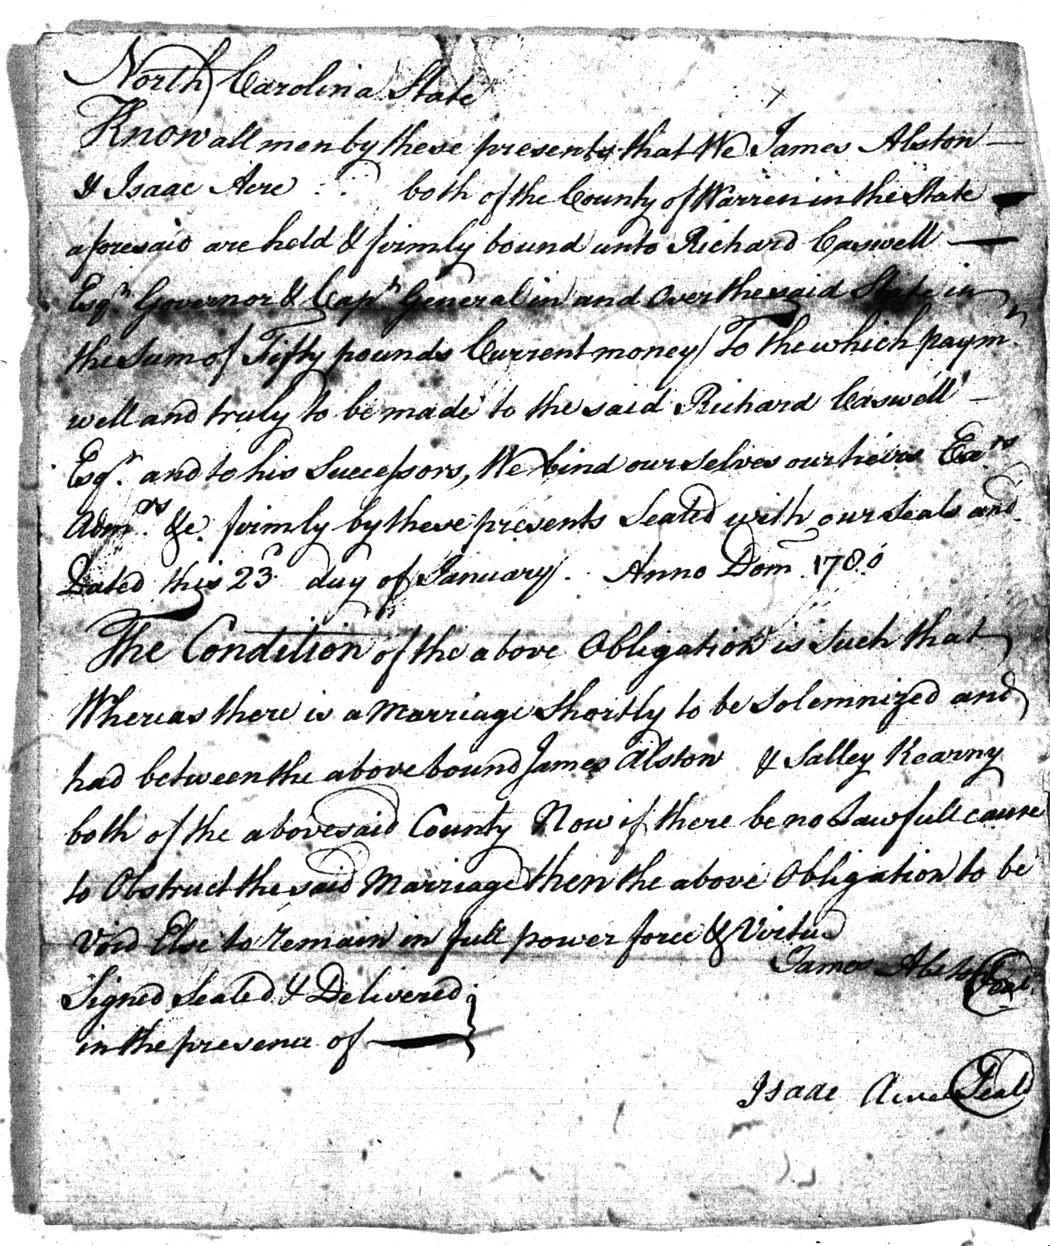 North Carolina State
Know all men by these presents that We James Alston
& Isaac Acre both of the County of Warren in the State
aforesaid are held & firmly bound unto Richard Caswell
Esqr. Governor & Capn. General in and over the said State in
the sum of Fifty pounds Current money To the which paymn.
well and truly to be made to the said Richard Caswell
Esqr. and to his Successors, We bind ourselves our heirs Exrs.
Admrs. &c. firmly by these presents Sealed with our Seals and
Dated this 23d day of January. Anno Dom. 1780
The Condition of the above Obligation is Such that
Whereas there is a Marriage Shortly to be Solemnized and
had between the above bound James Alston & Salley Kearny
both of the abovesaid County Now if there be no Lawfull cause
to Obstruct the said Marriage then the above Obligation to be
Void Else to remain in full power force & Virtue
Signed Sealed & Delivered
in the presence of
James Alston Seal
Isaac Acree Seal